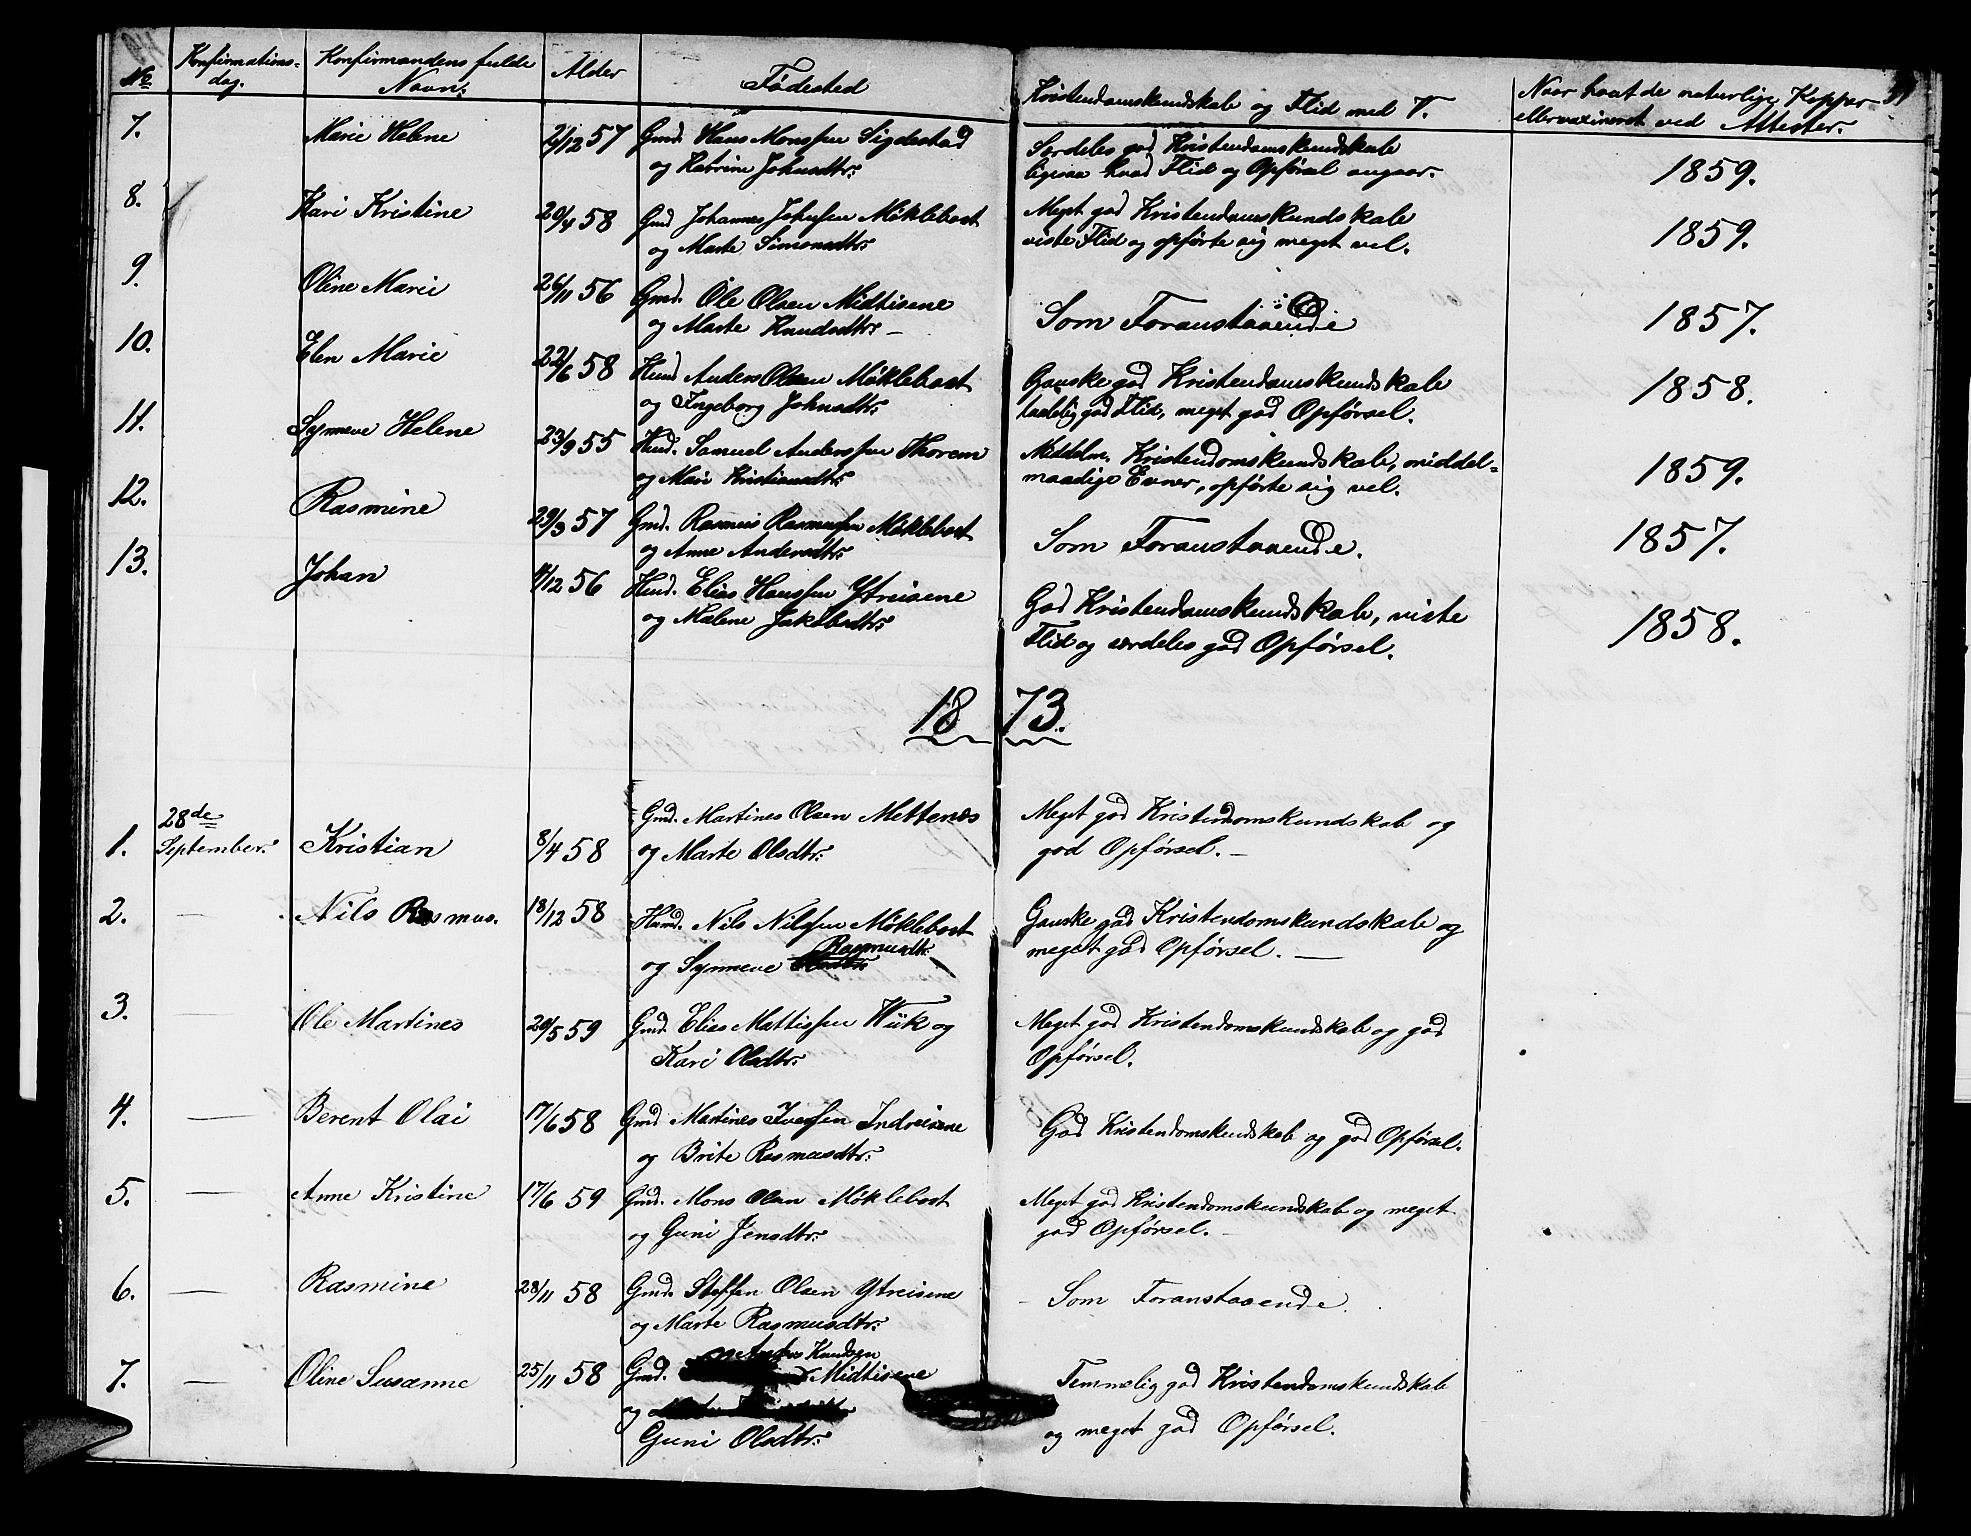 No Konfirmationsdag. Konfirmandens fulde Navn. Alder Fødested Kristendomskundskab og Flid med V. Naar havt de naturlige Kopper eller vaxineret ved Attester.
7. Marie Helene 2/12 57 Gmd. Hans Monssen Sigdestad Særdeles god Kristendomskundskab 1859.
og Katrine Johnsdtr. ligesaa hvad Flid og Opførsel angaar.
8. Kari Kristine 20/4 58 Gmd Johannes Johnsen Møklebost Meget god Kristendomskundskab 1859.
og Marte Simonsdtr. viste Flid og opførte sig meget vel.
9. Oline Marie 26/11 56 Gmd. Ole Olsen Midtisene Som Foranstaaende 1857.
og Marte Knudsdtr. –
10. Elen Marie 22/6 58 Hmd Anders Olsen Møklebost Ganske god Kristendomskundskab 1858.
og Ingeborg Johnsdtr. god Flid, meget god Opførsel.
11. Synneve Helene 23/9 55 Hmd. Samuel Anderssen Thorem Middelm. Kristendomskundskab, middel- 1859.
og Mari Kristiansdtr. maadige Evner, opførte sig vel.
12. Rasmine 29/3 57 Gmd. Rasmus Rasmussen Møklebost Som Foranstaaende. 1857.
og Anne Andersdtr.
13. Johan /12 56 Hmd. Elias Hanssen Ytreisene God Kristendomskundskab, viste 1858.
og Malene Jakobsdtr. Flid og særdeles god Opførsel.
1873.
28de
1. September. Kristian 8/4 58 Gmd. Martines Olsen Mettenes Meget god Kristendomskundskab og
og Marte Olsdtr. god Opførsel. –
2. — Nils Rasmus. 18/12 58 Hmd. Nils Nilssen Møklebost Ganske god Kristendomskundskab og
og Synneve Rasmusdtr. meget god Opførsel. —
3. — Ole Martines 20/5 59 Gmd. Elias Mattissen Wiik og Meget god Kristendomskundskab og god
Kari Olsdtr. Opførsel.
4. — Berent Olai 17/6 58 Gmd Martines Iversen Indreisene God Kristendomskundskab og god Opførsel.
og Brite Rasmusdtr.
5. — Anne Kristine 17/6 59 Gmd. Mons Olsen Møklebost Meget god Kristendomskundskab og meget
og Guni Jensdtr. god Opførsel. –
6. — Rasmine 28/11 58 Gmd. Steffen Olsen Ytreisene – Som Foranstaaende.
og Marte Rasmusdtr.
7. — Oline Susanne 25/11 58 Gmd. Knudsen Midtisene Temmelig god Kristendomskundskab
og Guni Olsdtr. og meget god Opførsel.